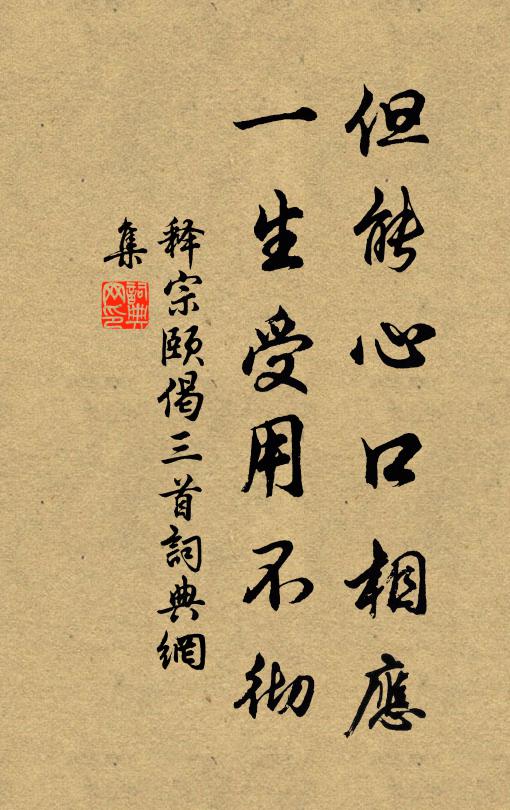 但能心口相應
一生受用不彻
释宗頤偈三首詞典網
集
詞典
网印